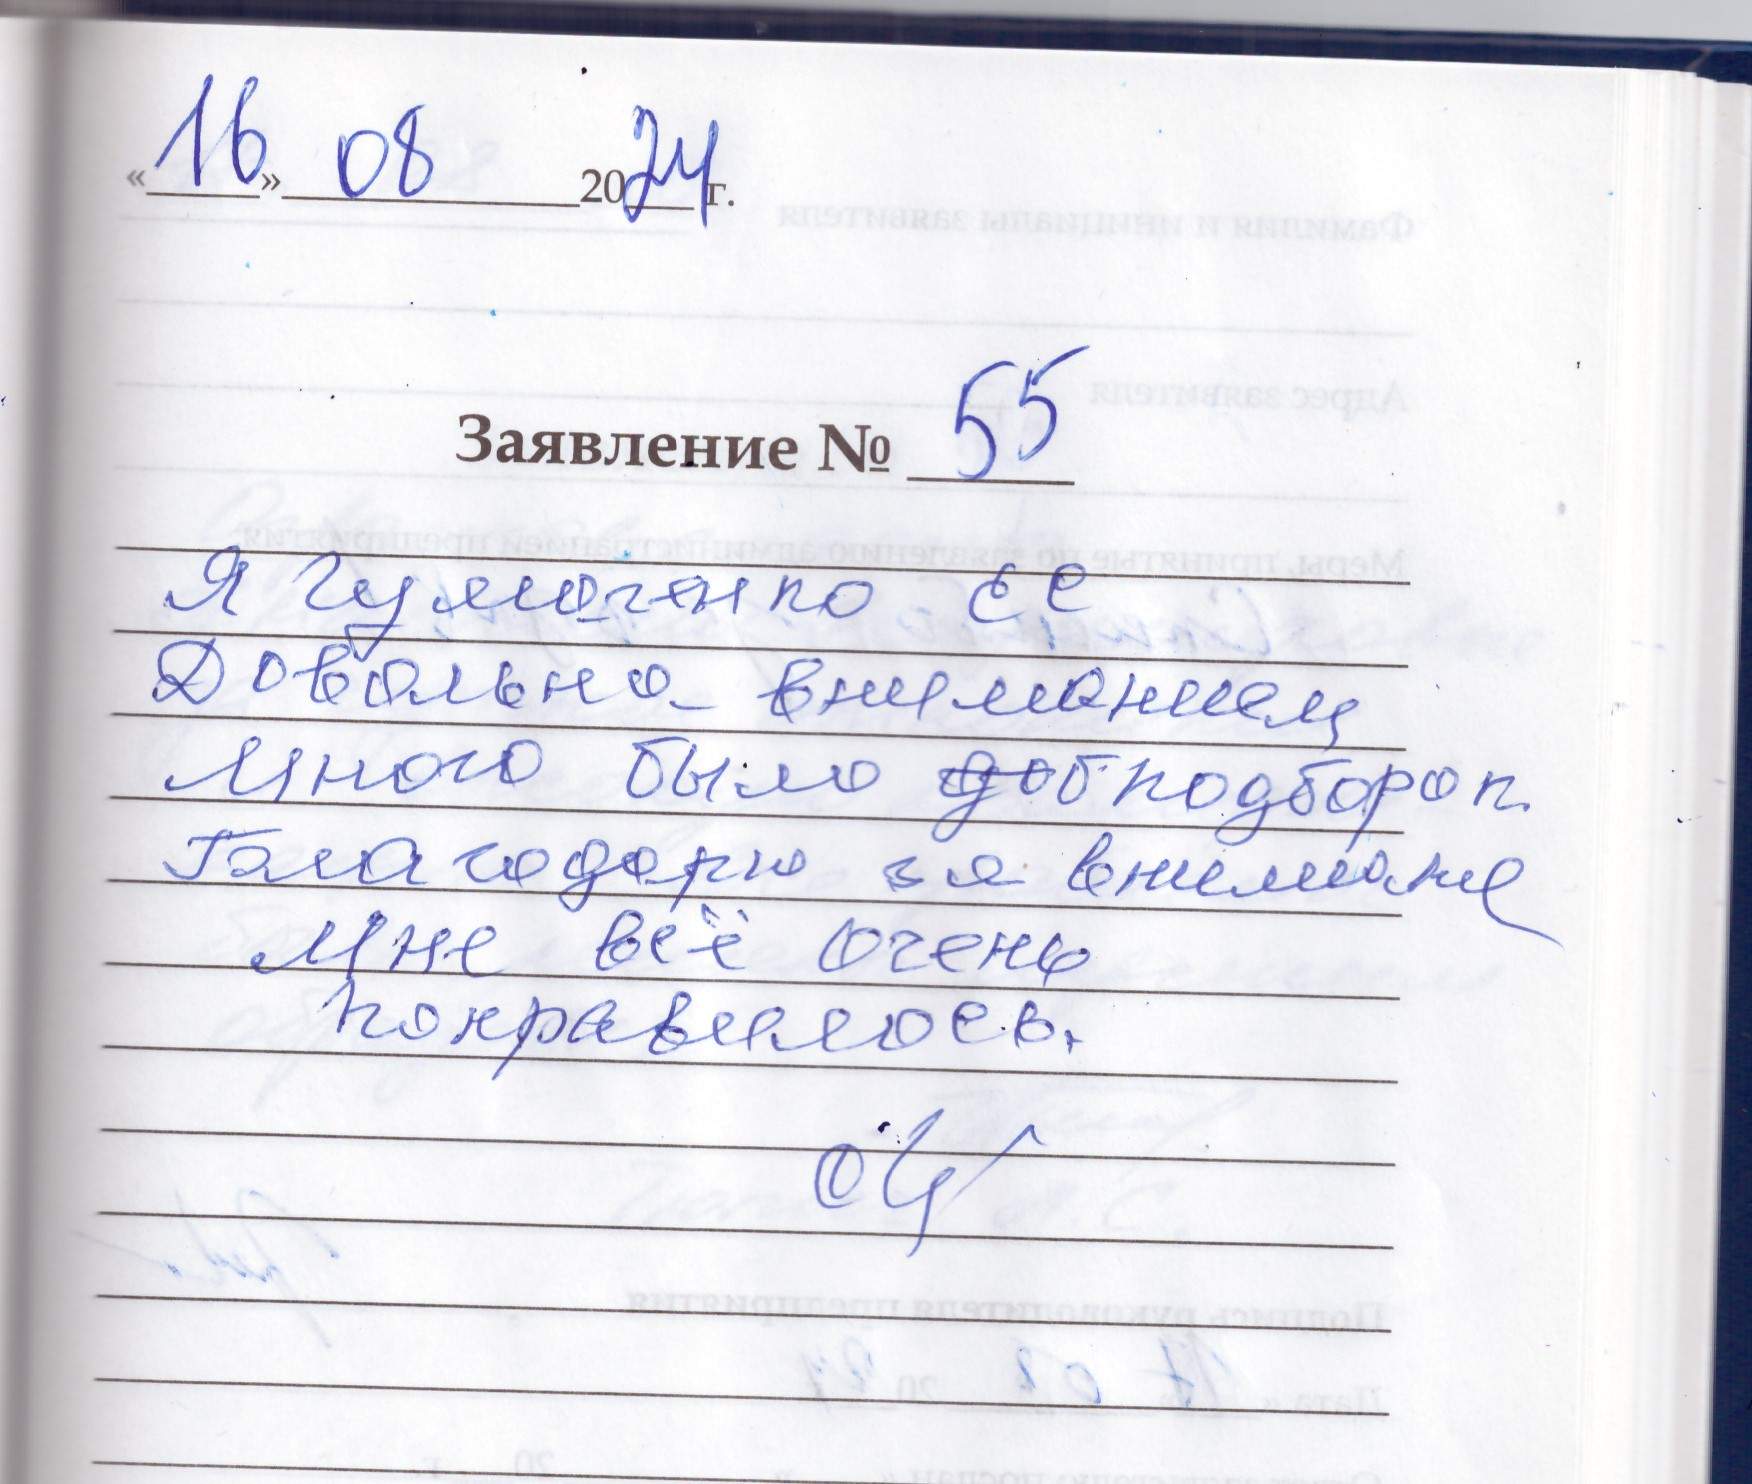 «16» 08 2024 г.
Заявление № 55
Я Гумоченко ЕЕ
Довольна вниманием
Много было подборок.
Благодарю за внимание
Мне всё очень
понравилось.